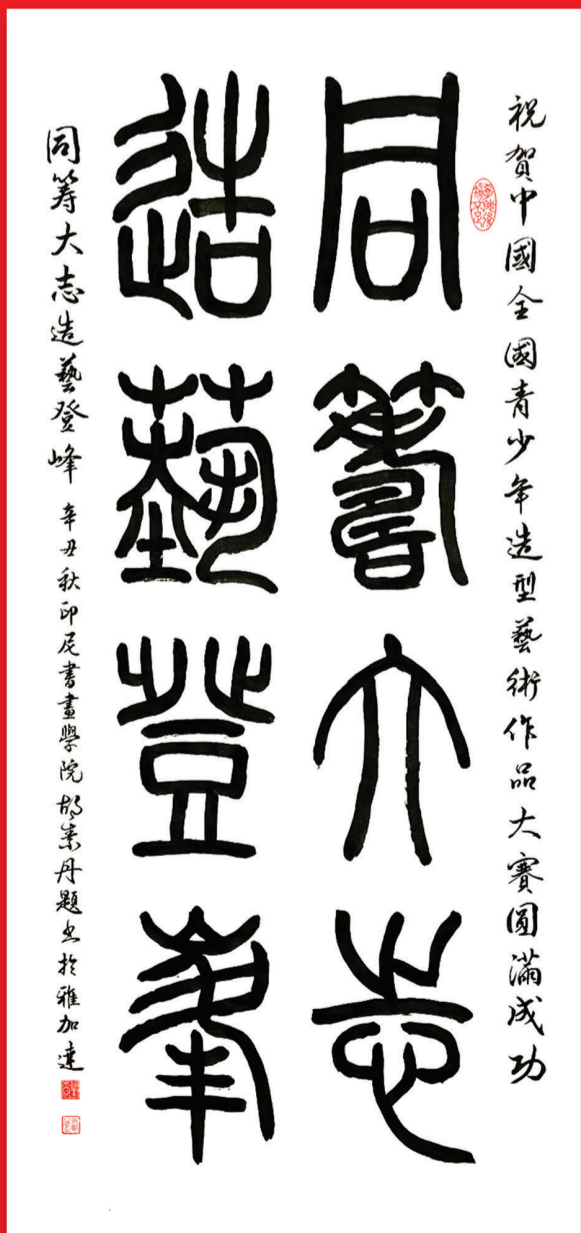 祝賀中國全國青少年造型藝術作品大賽圓滿成功
同籌大志
造藝登峯
同籌大志造藝登峰 辛丑秋印尼書畫學院胡素丹題書於雅加達